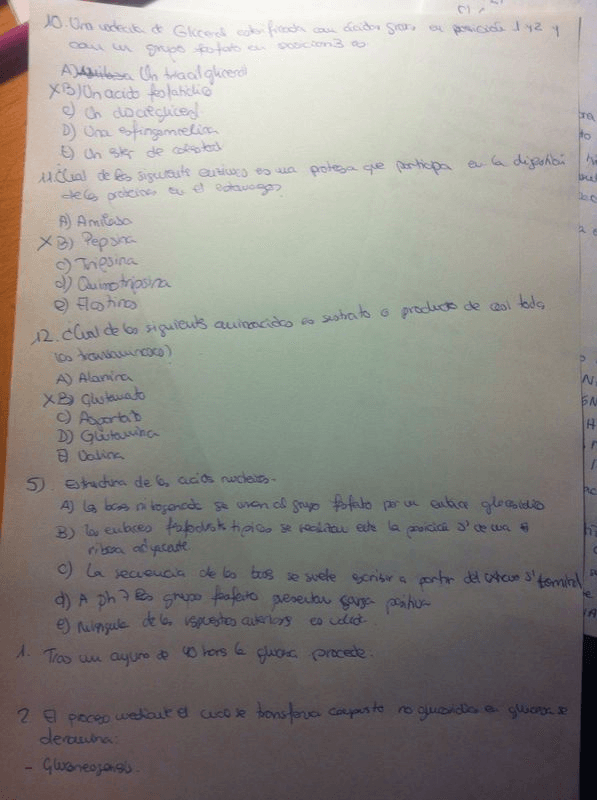 10. Una molecula de Glicerol esterificada con ácidos grasos en posición 1 y 2 y
con un grupo fosfato en posicion 3 es
A) Un triacilglicerol
X B) Un acido fosfatidico
c) Un diacilglicerol
D) Una esfingomielina
E) Un ester de colesterol
11. ¿Cual de los siguiente enzimas es una proteasa que participa en la digestión
de las proteinas en el estomago?
A) Amilasa
X B) Pepsina
c) Tripsina
d) Quimotripsina
e) Elastinas
12. ¿Cual de los siguiente aminoacidos es sustrato o producto de casi todas
las transaminasas?
A) Alanina
X B) Glutamato
C) Aspartato
D) Glutamina
E) Valina
5). Estructura de los acidos nucleicos.
A) Las bases nitogenada se unen al grupo fosfato por un enlace glucosidico
B) los enlaces tipicos se realizan este la posicion 5' de una
ribosa adyacente
c) La secuencia de las bases se suele escribir a partir del 5' terminal
d) A ph 7 los grupo fosfato presentan carga positiva
e) Ninguna de las respuestas anteriores es valida.
1. Tras un ayuno de 40 horas la glucosa procede.
2 El proceso mediante el cual se transforma compuesto no glucosidico en glucosa se
denomina:
- Gluconeogenesis.